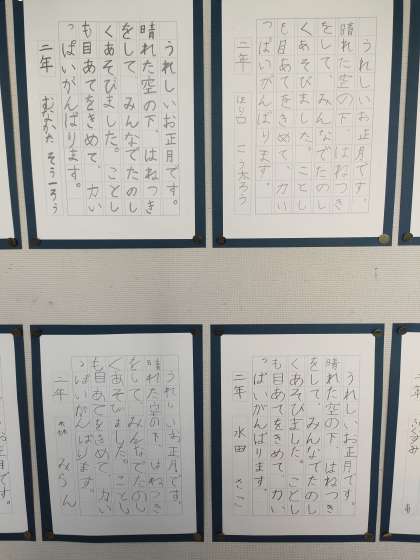 うれしいお正月です。
晴れた空の下、はねつき
をして、みんなでたのし
くあそびました。ことし
も目あてをきめて、力い
っぱいがんばります。
二年 ほり口 こう太ろう
うれしいお正月です。
晴れた空の下、はねつき
をして、みんなでたのし
くあそびました。ことし
も目あてをきめて、力い
っぱいがんばります。
二年 むなかた そういちろう
うれしいお正月です。
晴れた空の下、はねつき
をして、みんなでたのし
くあそびました。ことし
も目あてをきめて、力い
っぱいがんばります。
二年 水田
うれしいお正月です。
晴れた空の下、はねつき
をして、みんなでたのし
くあそびました。ことし
も目あてをきめて、力い
っぱいがんばります。
二年 森 みらん
お正月です。